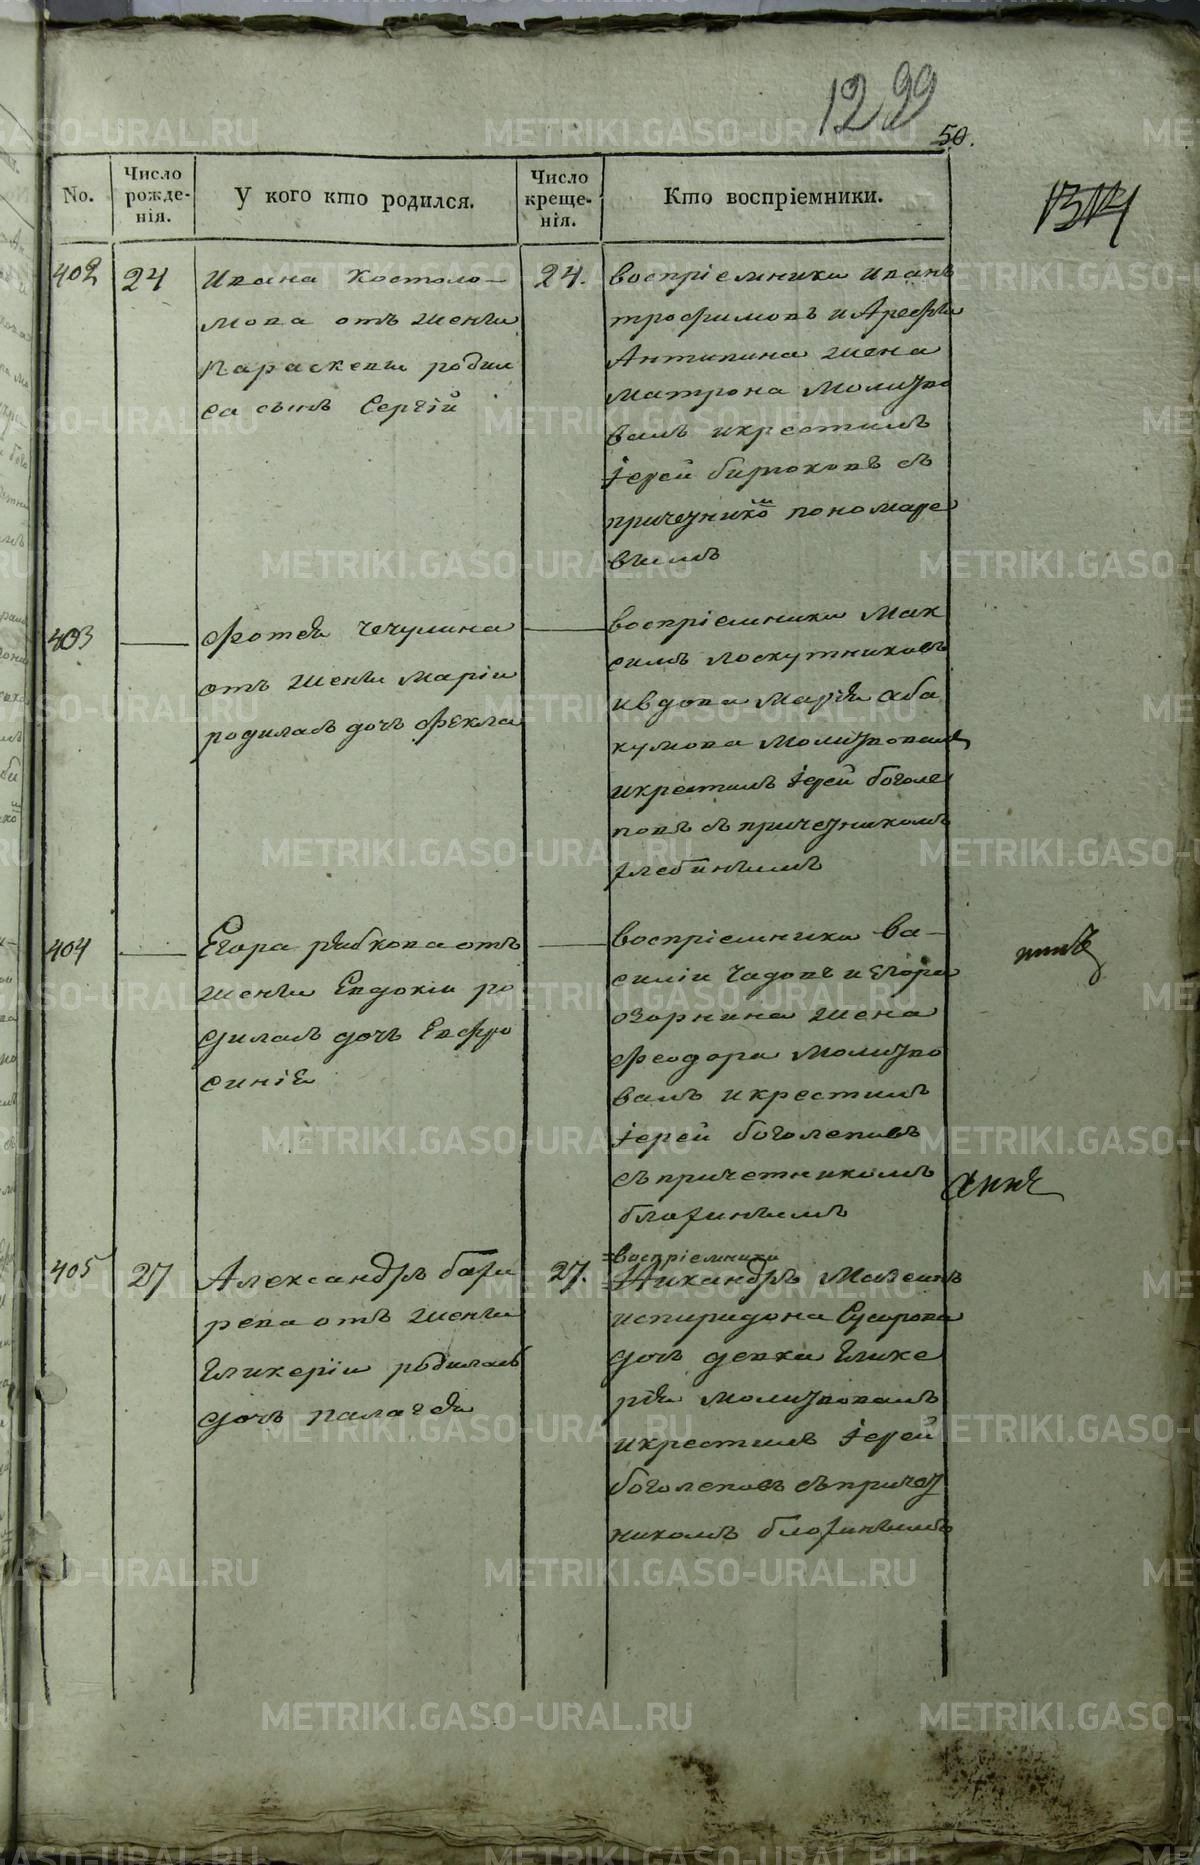 1299
50.
1314
No.
Число рожде-нія.
У кого кто родился.
Число креще-нія.
Кто воспріемники.
402
24
Ивана Костоло-
мова отъ жены
Параскевы родил
са сынъ Сергій
24.
воспріемники Иванъ
трофимовъ и Арефьи
Антипина жена
Матрона Молитво
валъ и крестилъ
іерей бирюковъ съ
причетнико м пономаре
вымъ
403
Фотея Чечулина
отъ жены Маріи
родилась дочь Фекла
воспріемники Мак
симъ лоскутниковъ
и вдова Марія аба
кумова Молитвовалъ
и крестилъ іерей боголе
повъ съ причетникомъ
404
Егора рябкова отъ
жены Евдокіи ро
дилась дочь Евфро
синія
воспріемники Ва-
силіи Чадовъ и Егора
озорнина жена
Феодора Молитво
валъ и крестилъ
іерей боголеповъ
съ причетникомъ
405
27
Александръ
рева отъ жены
Гликеріи родилась
дочь палагея
27.
воспріемники
Никандръ
и спиридона Сусорова
дочь девка Глике
рія молитвовалъ
и крестилъ іерей
боголеповъ съ причет
никомъ
METRIKI.GASO-URAL.RU